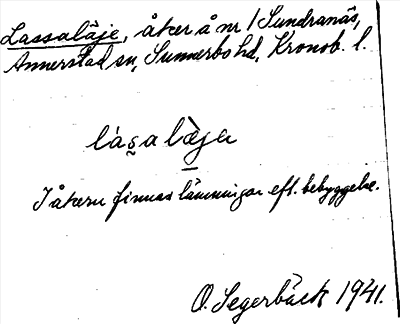 Lassaläje, åker å nr 1 Sundranäs,
Annerstad sn, Sunnerbo hd, Kronob. l.
låsalæja
I åkern finnas lämningar eft. bebyggelse.
O. Segerbäck 1941.